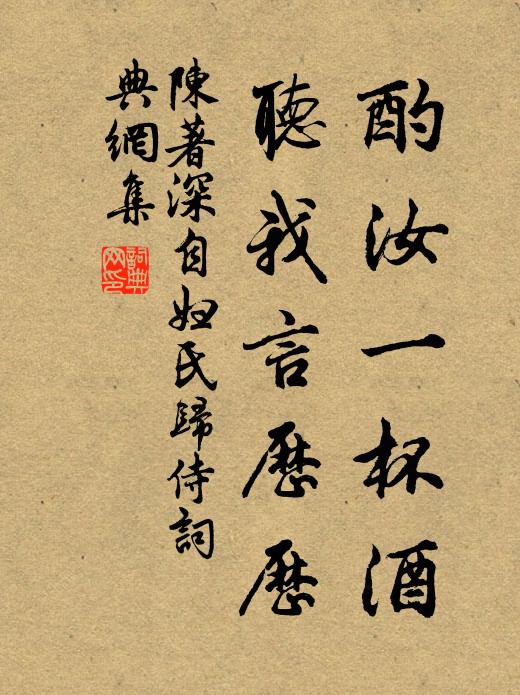 酌汝一杯酒
聽我言歷歷
陳著深自婦氏歸侍詞
典網集
詞典網印